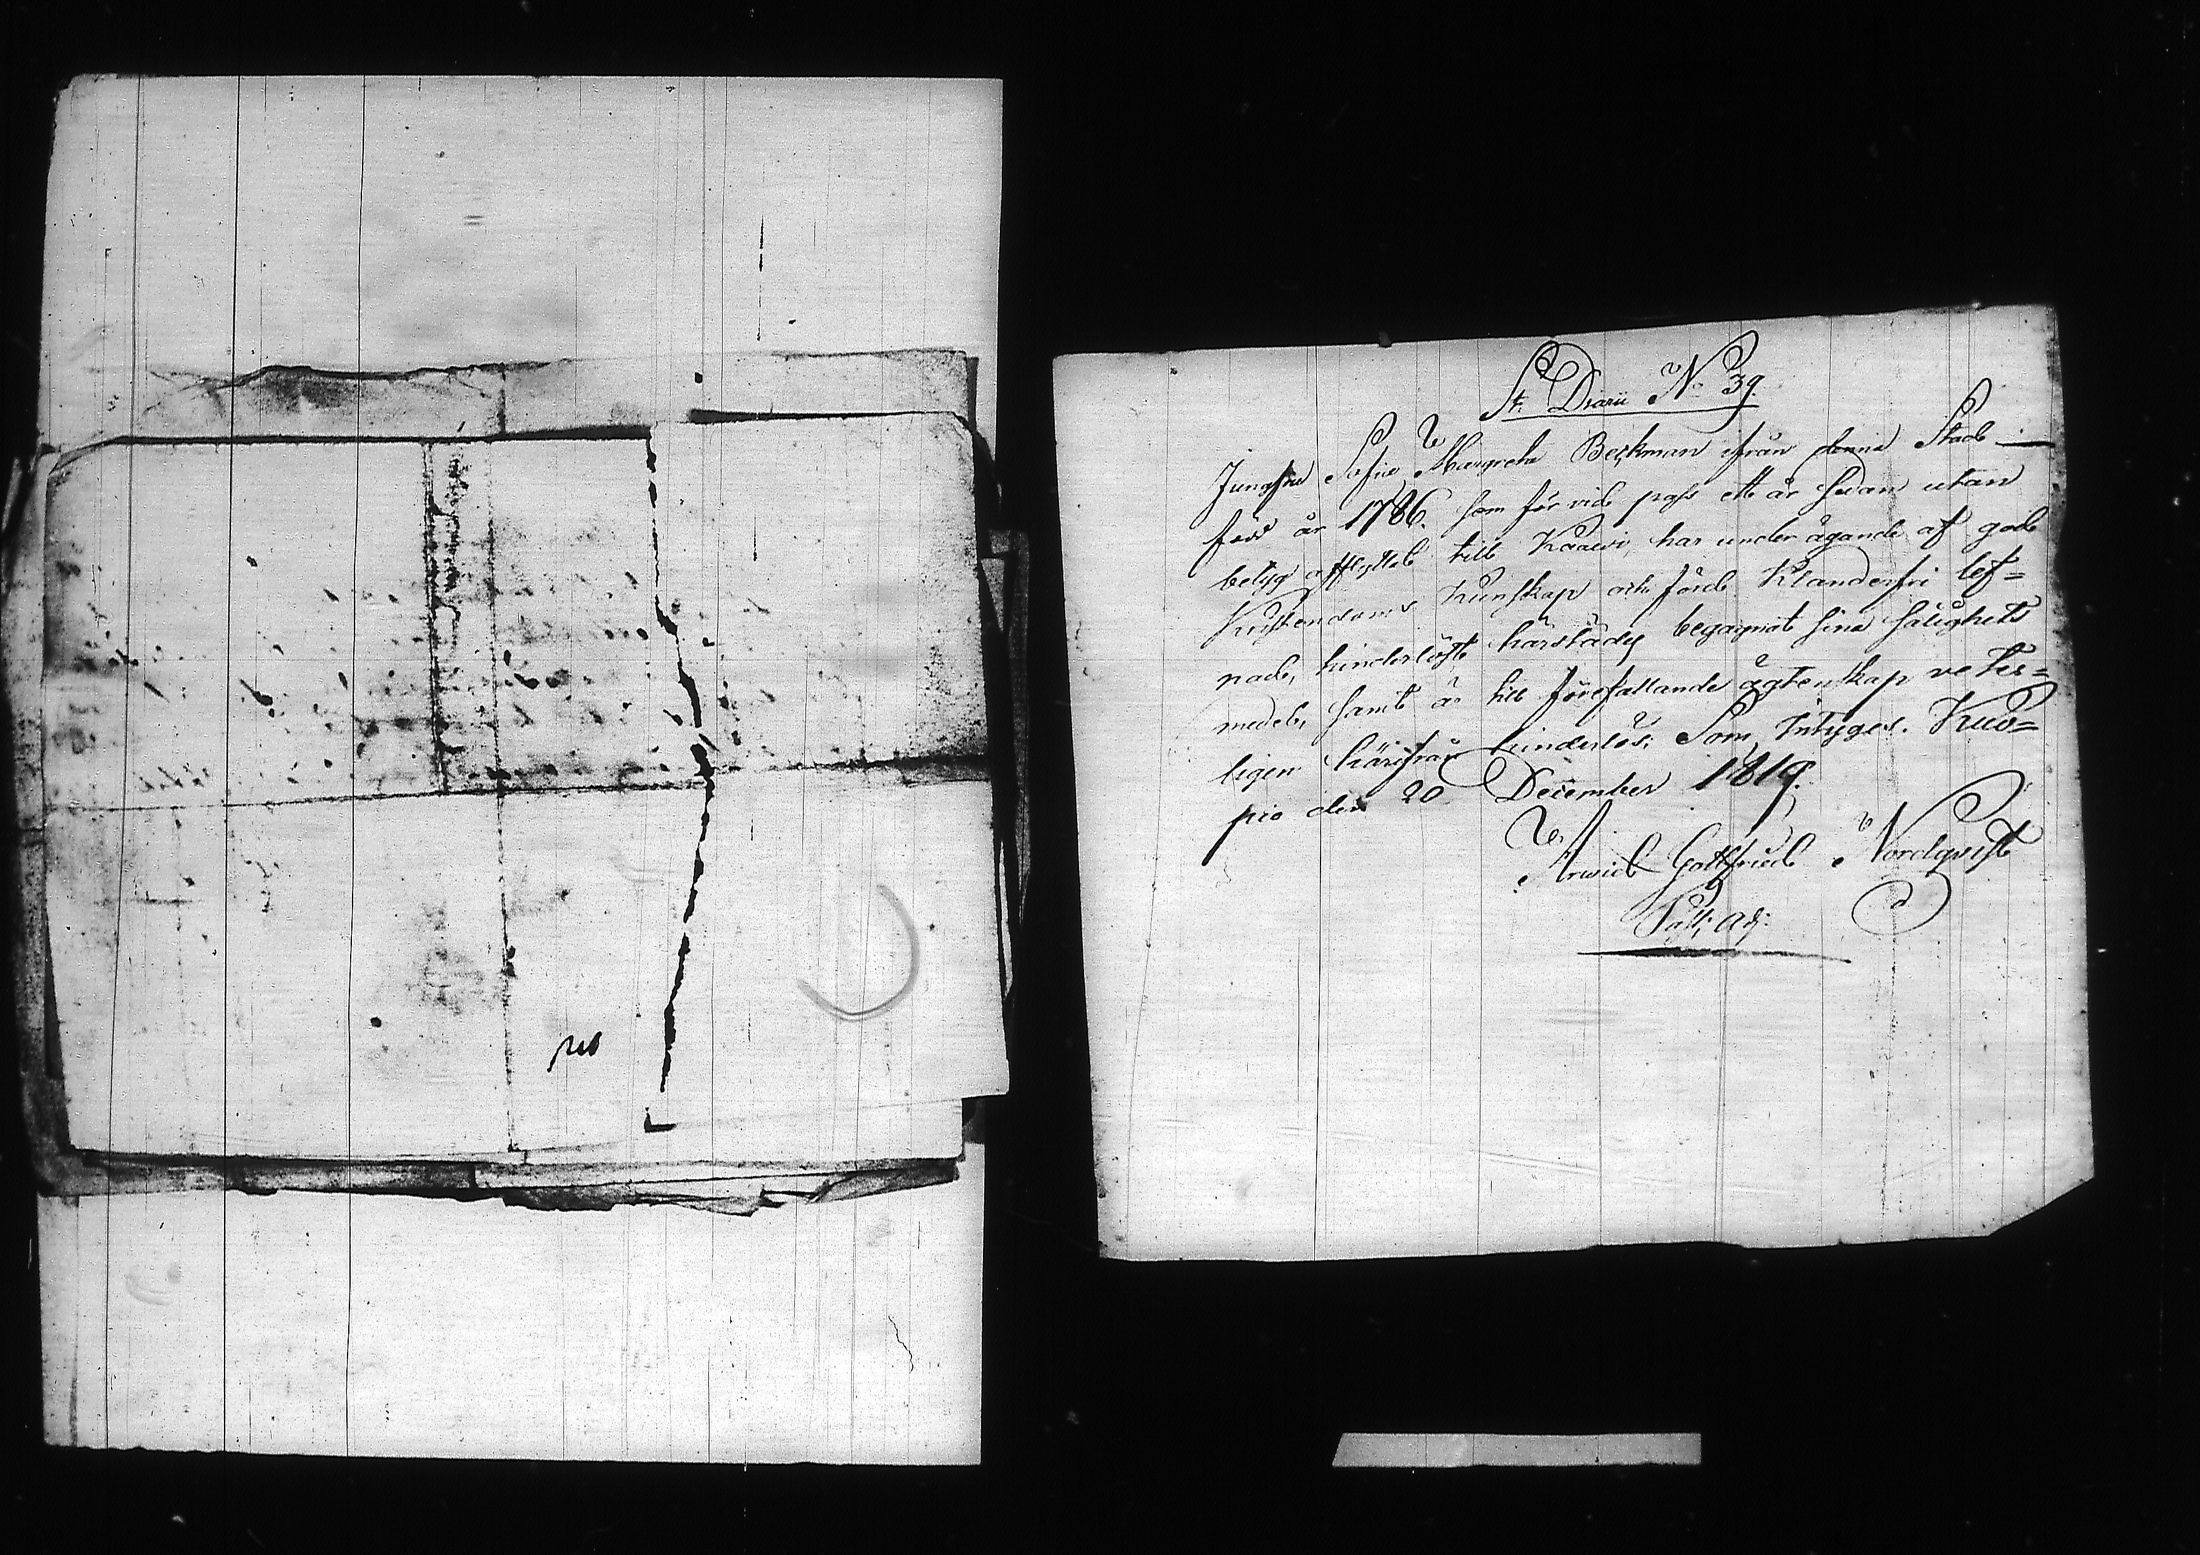 St. Diarii No 39.
Jungfru Sofia Margreta Beckman ifrån denna Stad
född år 1786. som för vid pass ett år sedan utan
betyg afflyttat till Kaawi, har under ägande af god
Kristendoms Kunskap och förd Klanderfri lef=
nad, hinderlöst härstädes begagnat sina salighets
medel, samt är till förefallande ägtenskap veter=
ligen härifrån hinderlös; Som intygas. Kuo=
pio den 20 December 1819.
Arwid Gottfried Nordqvist
Past; Adj: